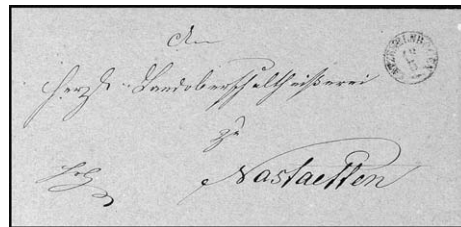 An
Herzgl. Landoberschultheißerei
zu
Nastaetten